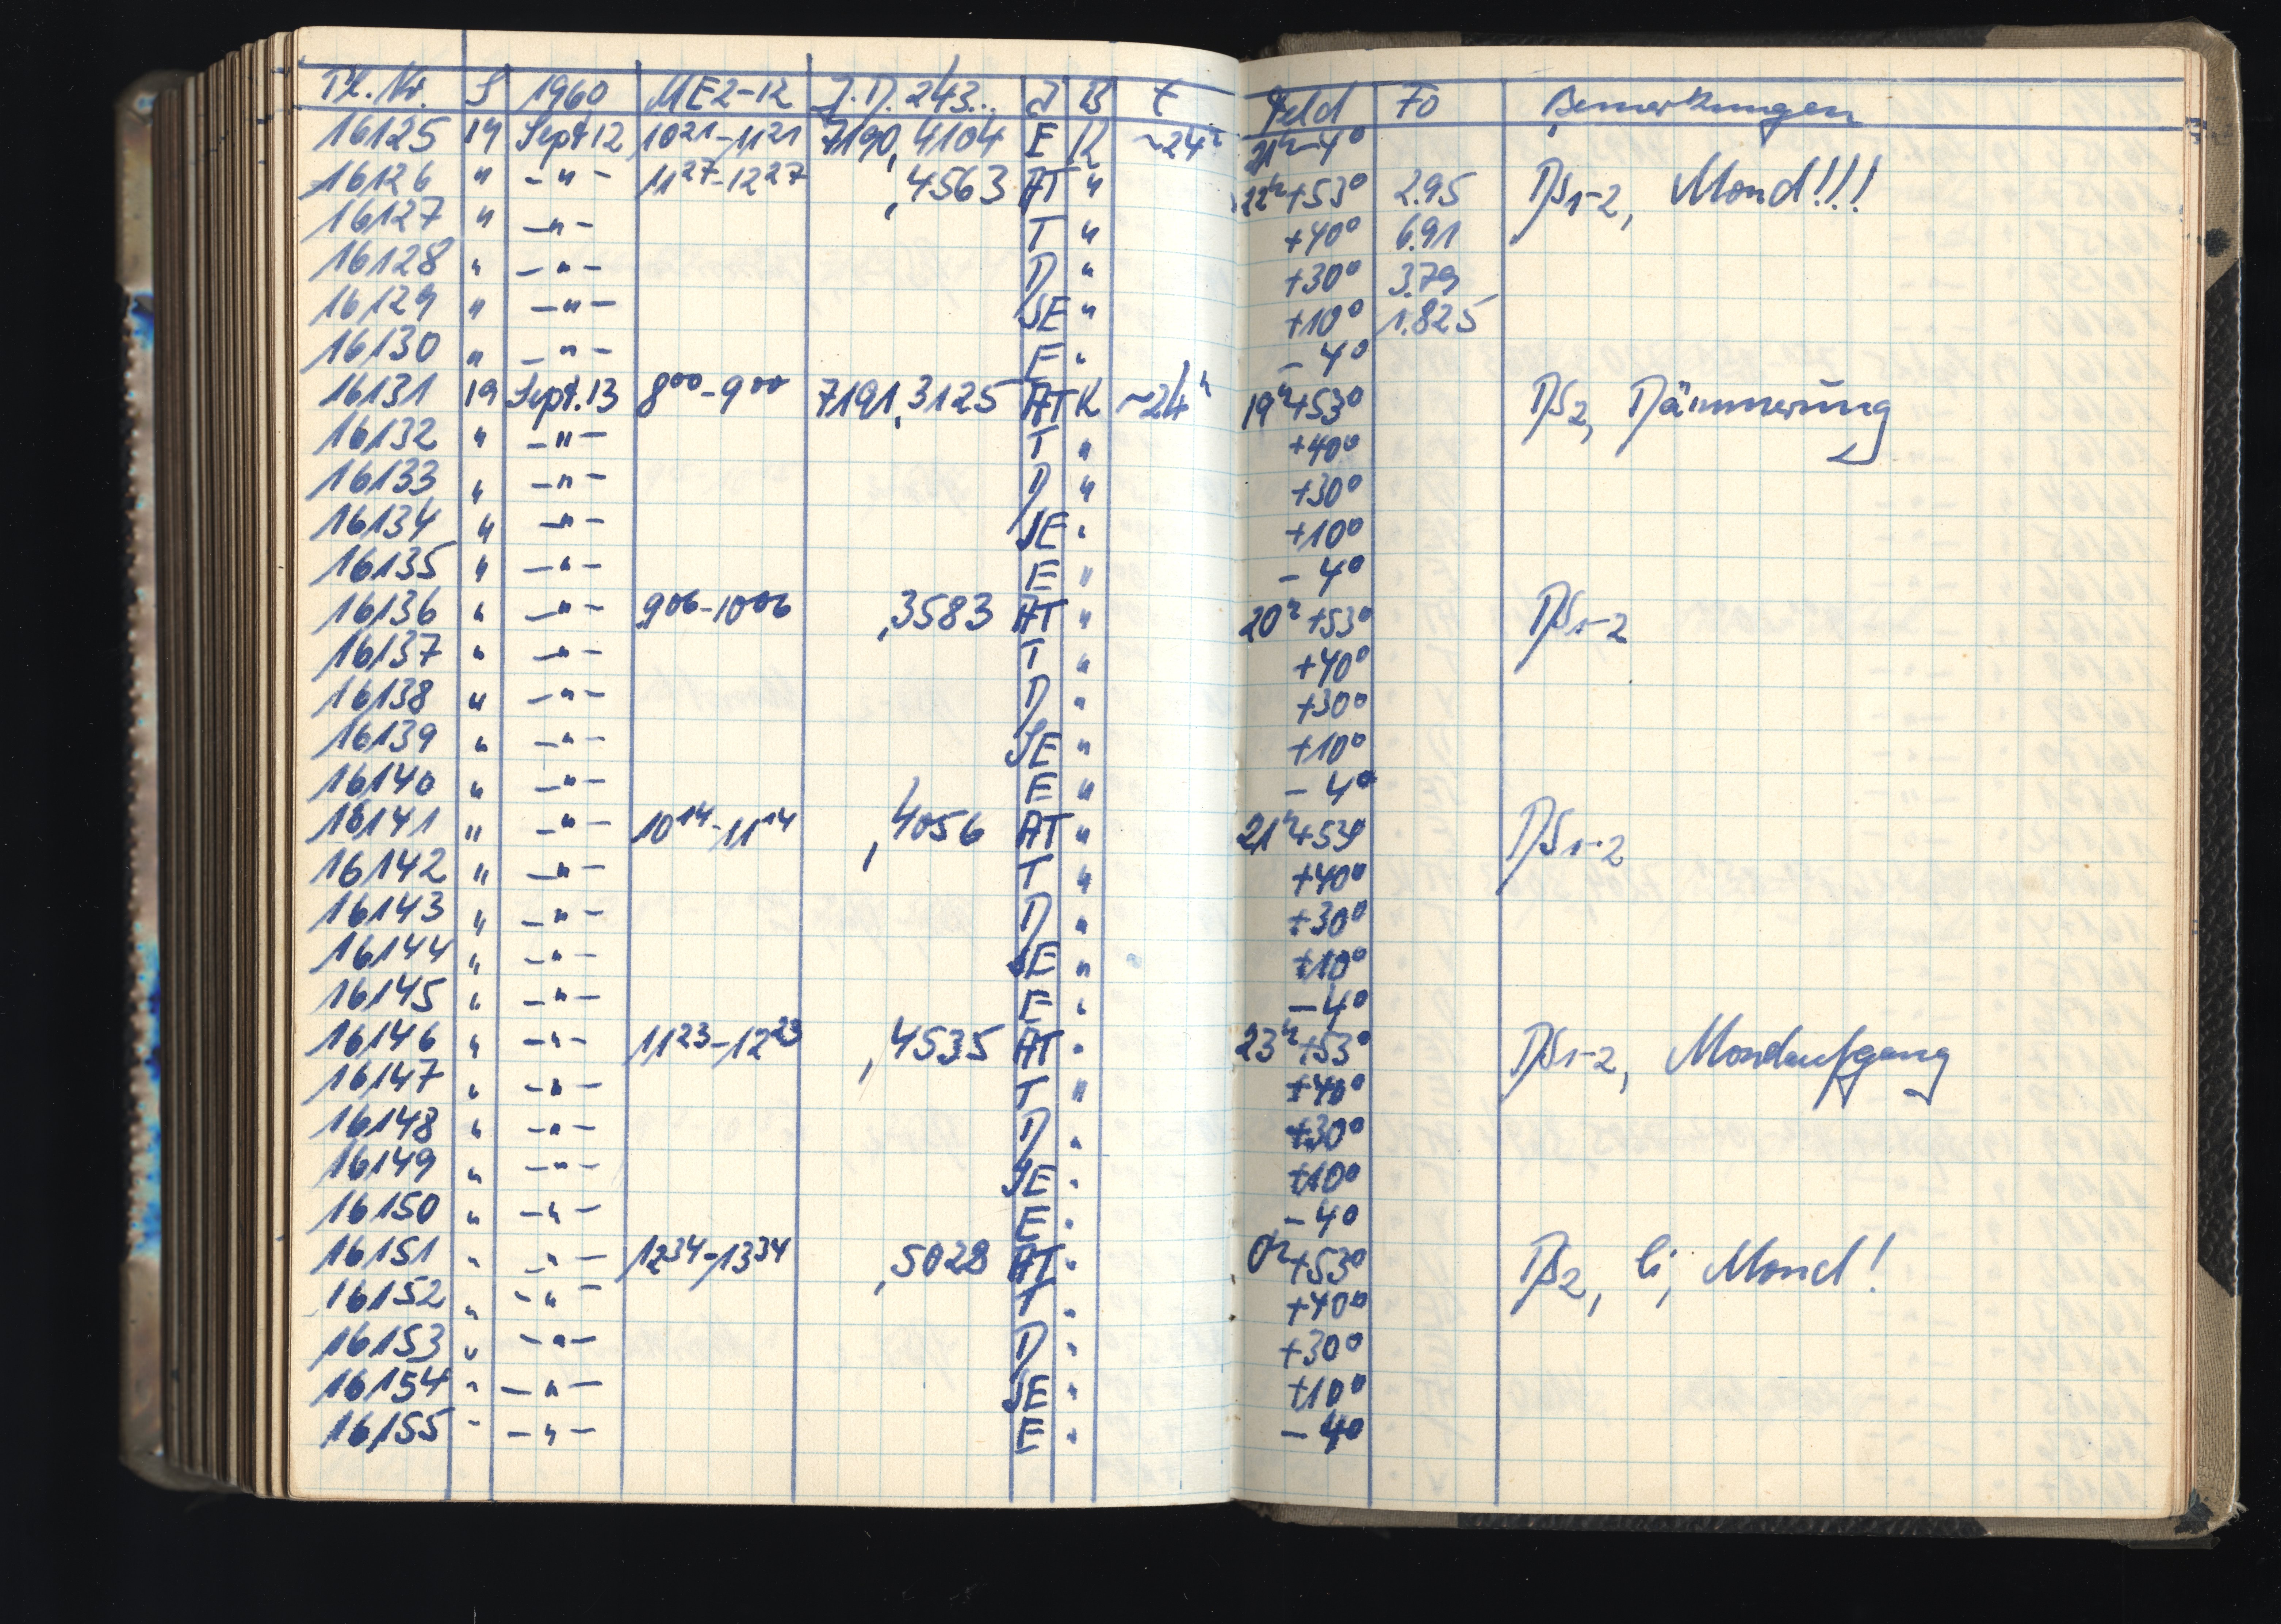 Pl. Nr. S 1960 MEZ-12 J.D. 243... J B t Feld Fo Bemerkungen
16125 19 Sept 12 10²¹-11²¹ 7190,4104 E K ~24ʰ 21ʰ-4°
16126 " -"- 11²⁷-12²⁷ ,4563 AT " 22ʰ+53° 2.95 DS1-2, Mond!!!
16127 " -"- T " +40° 6.91
16128 " -"- D " +30° 3.79
16129 " -"- SE " +10° 1.825
16130 " -"- E " -4°
16131 19 Sept. 13 8⁰⁰-9⁰⁰ 7191,3125 AT K ~24ʰ 19ʰ+53° DS2, Dämmerung
16132 " -"- T " +40°
16133 " -"- D " +30°
16134 " -"- SE " +10°
16135 " -"- E " -4°
16136 " -"- 9⁰⁶-10⁰⁶ ,3583 AT " 20ʰ+53° DS1-2
16137 " -"- T " +40°
16138 " -"- D " +30°
16139 " -"- SE " +10°
16140 " -"- E " -4°
16141 " -"- 10¹⁴-11¹⁴ ,4056 AT " 21ʰ+53° DS1-2
16142 " -"- T " +40°
16143 " -"- D " +30°
16144 " -"- SE " +10°
16145 " -"- E " -4°
16146 " -"- 11²³-12²³ ,4535 AT " 23ʰ+53° DS1-2, Mondaufgang
16147 " -"- T " +40°
16148 " -"- D " +30°
16149 " -"- SE " +10°
16150 " -"- E " -4°
16151 " -"- 12³⁴-13³⁴ ,5028 AT " 0ʰ+53° DS2, li, Mond!
16152 " -"- T " +40°
16153 " -"- D " +30°
16154 " -"- SE " +10°
16155 " -"- E " -4°